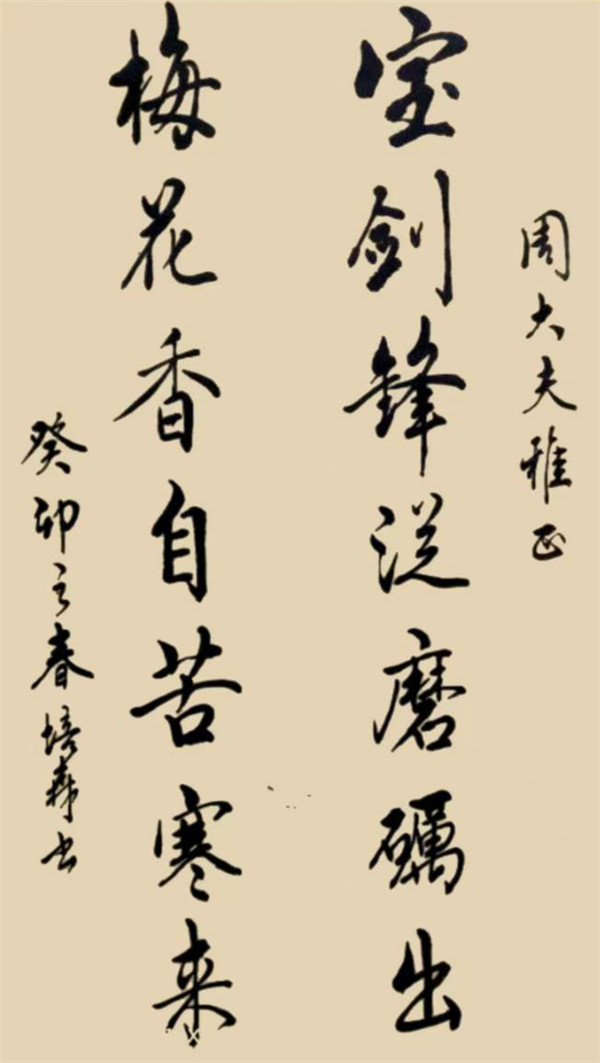 周大夫雅正
宝剑锋从磨砺出
梅花香自苦寒来
癸卯之春培森书